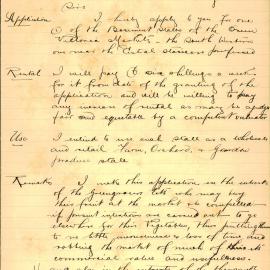 Sirs
Application I hereby apply to you for one
of the Basement Stalls of the Queen
Victoria Markets, the South
or near the Central Stairs preferred
Rental I will pay £ six shillings a week
for it from date of the granting of the
application and will be willing to pay
any increase of rental as may be
fair and equitable by a competent valuator
Use I intend to use said stall as a wholesale
and retail Farm, Orchard, & Garden
produce stall
Remarks I make this application in the interests
of the Greengrocers who may buy
this fruit at the market as compelled
if present are carried to go
elsewhere for this Vegetables, thus putting them
to no little loss of time and
robbing the market of much of this its
commercial value and usefulness.
in the interests of the